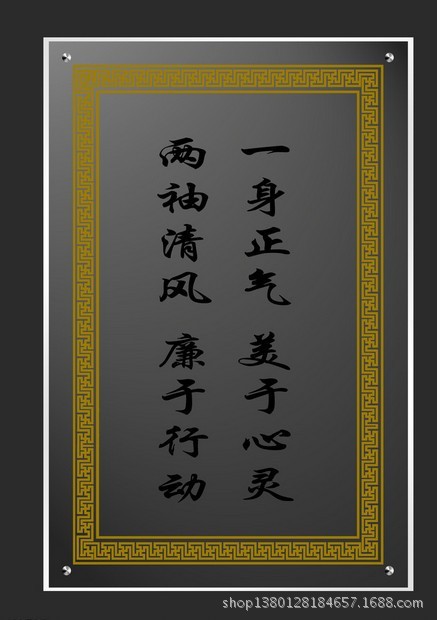 一身正气 美于心灵
两袖清风 廉于行动
shop1380128184657.1688.com